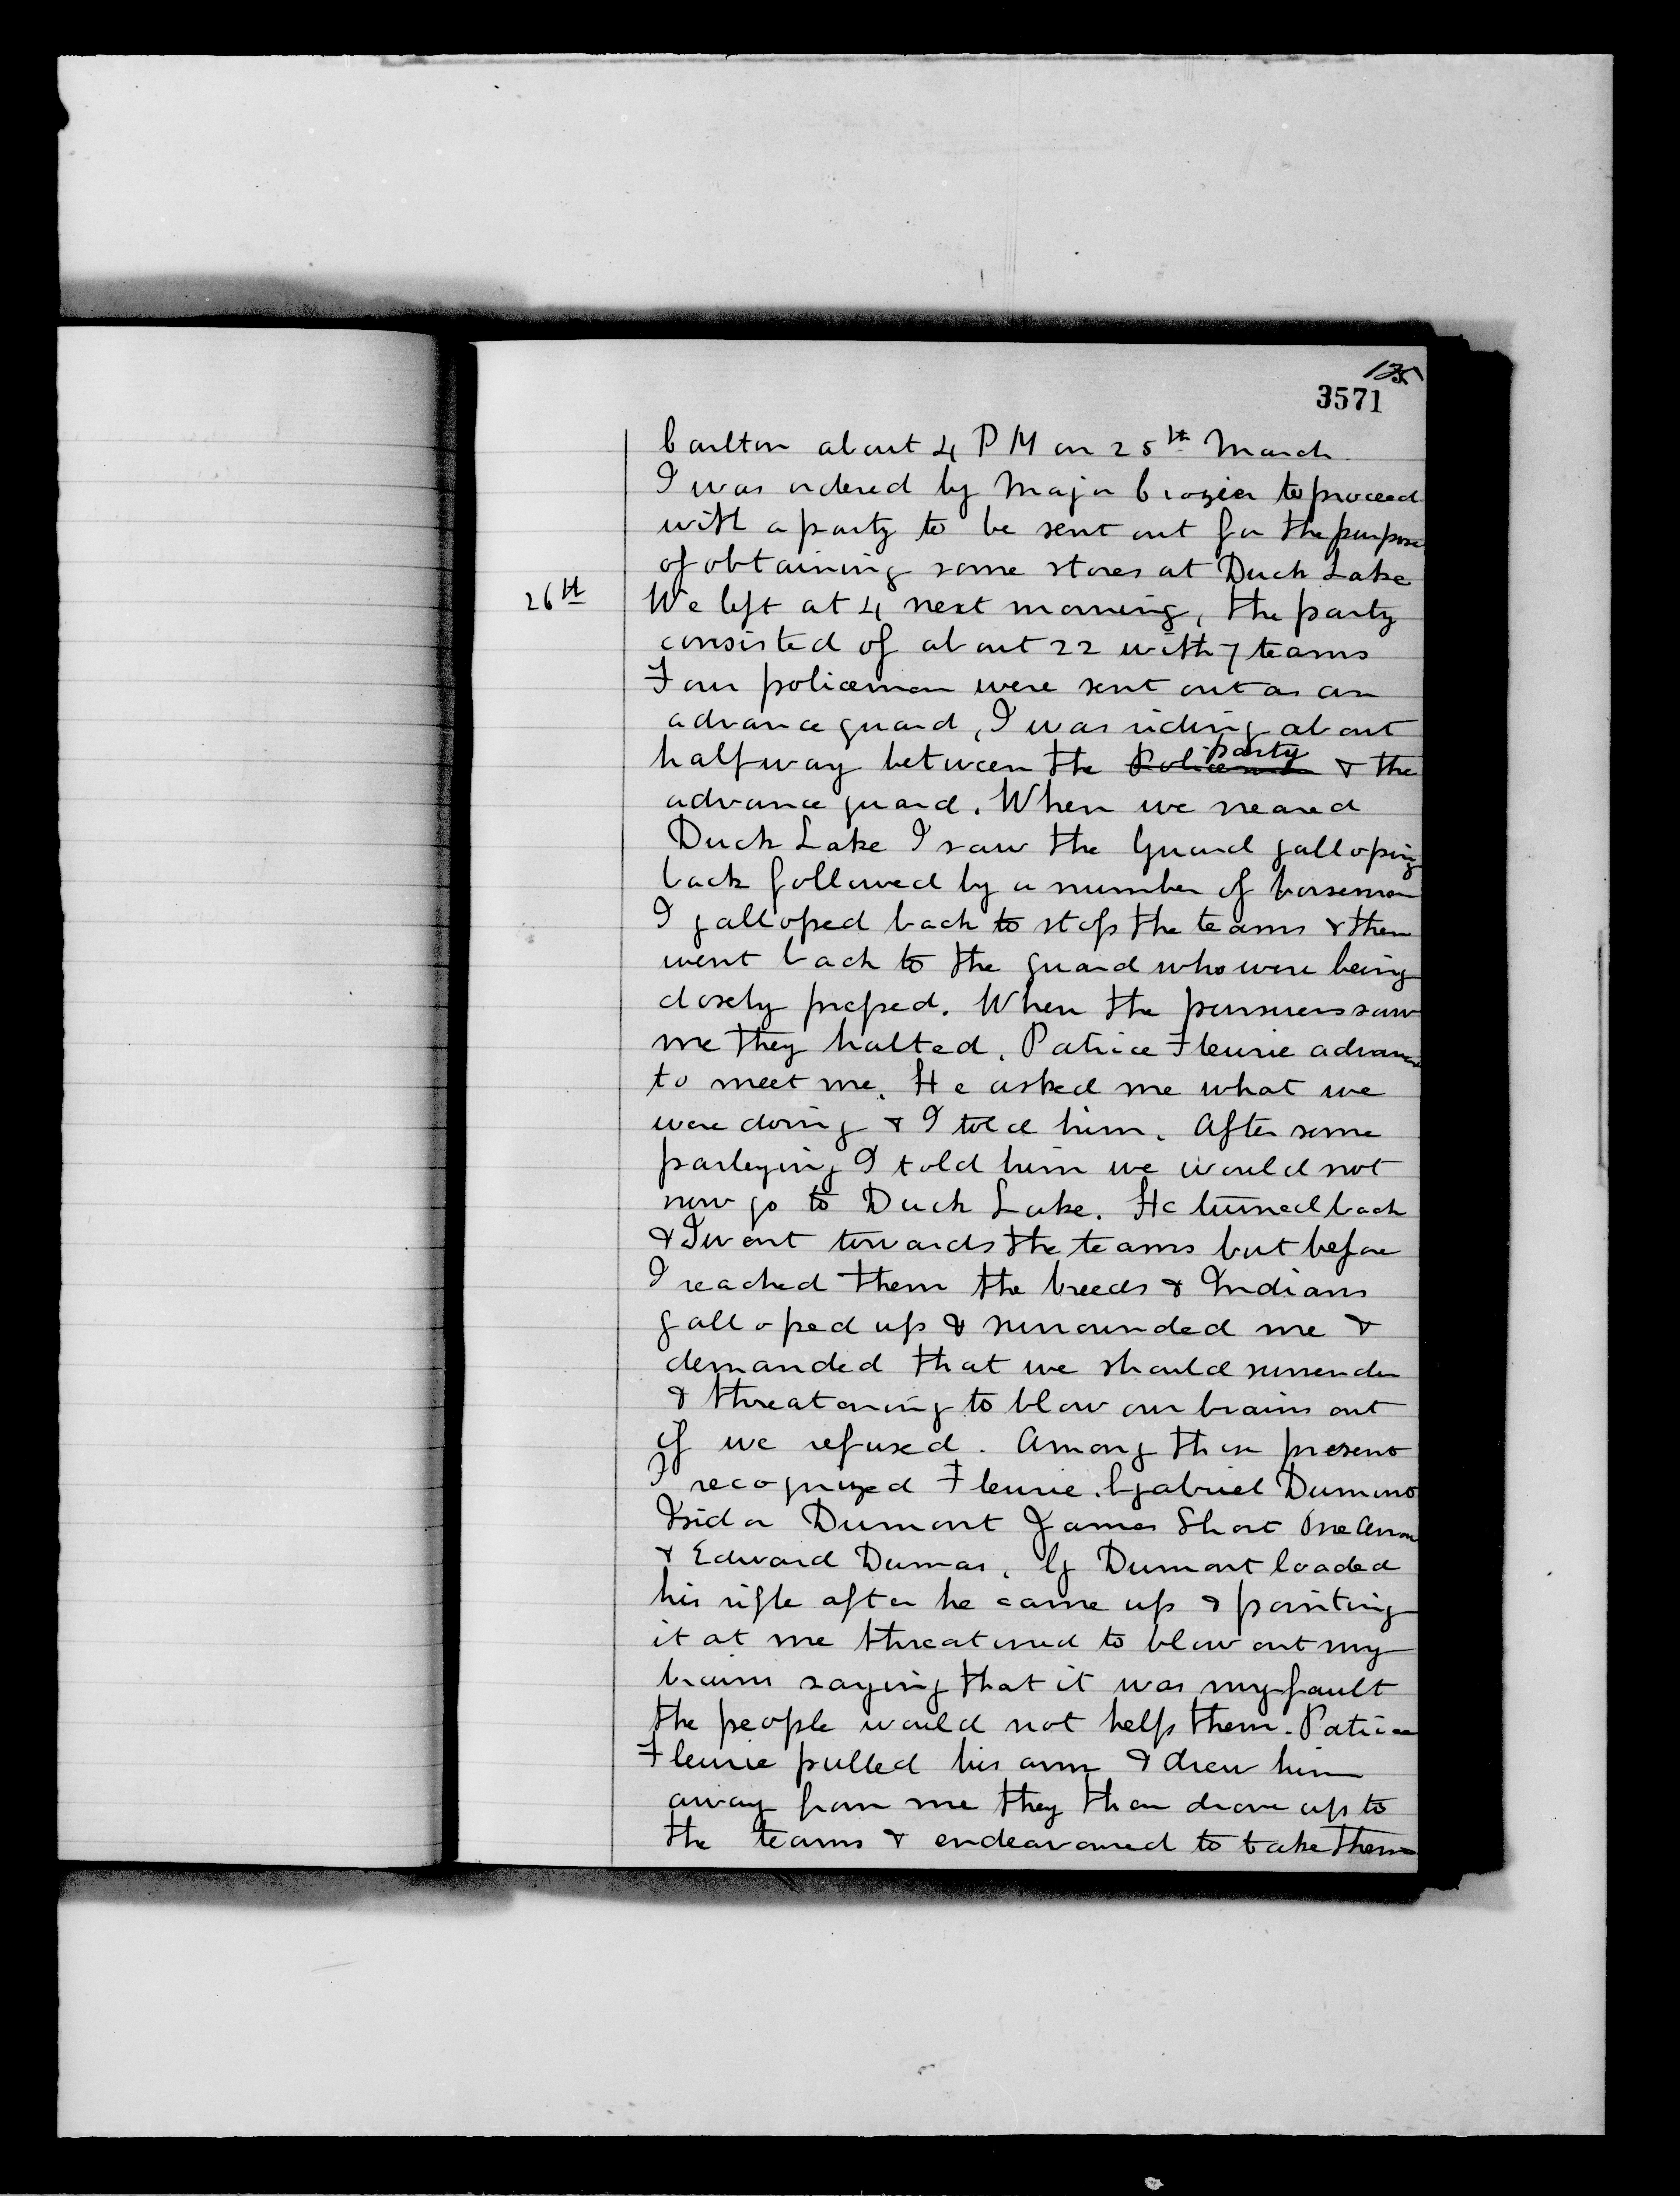 3571
Carlton about 4 PM on 25th March
I was ordered by Major Crozier to proceed
with a party to be sent out for the purpose
of obtaining some stores at Duck Lake
26th We left at 4 next morning, the party
consisted of about 22 with 7 teams
Four policemen were sent out as an
advance guard, I was riding about
halfway between the party & the
advance guard. When we neared
Duck Lake I saw the Guard galloping
back followed by a number of horsemen
I galloped back to stop the teams & then
went back to the guard who were being
closely pressed. When the pursuers saw
me they halted. Patrice Fleurie advanced
to meet me. He asked me what we
were doing & I told him. After some
parleying I told him we would not
now go to Duck Lake. He turned back
& I went towards the teams but before
I reached them the breeds & Indians
galloped up & surrounded me &
demanded that we should surrender
& threatening to blow our brains out
if we refused. Among those present
I recognized Fleurie, Gabriel Dumont
Isidor Dumont James Short One Arrow
& Edward Dumas. G Dumont loaded
his rifle after he came up & pointing
it at me threatened to blow out my
brains saying that it was my fault
the people would not help them. Patrice
Fleurie pulled his arm & drew him
away from me they then drove up to
the teams & endeavoured to take them